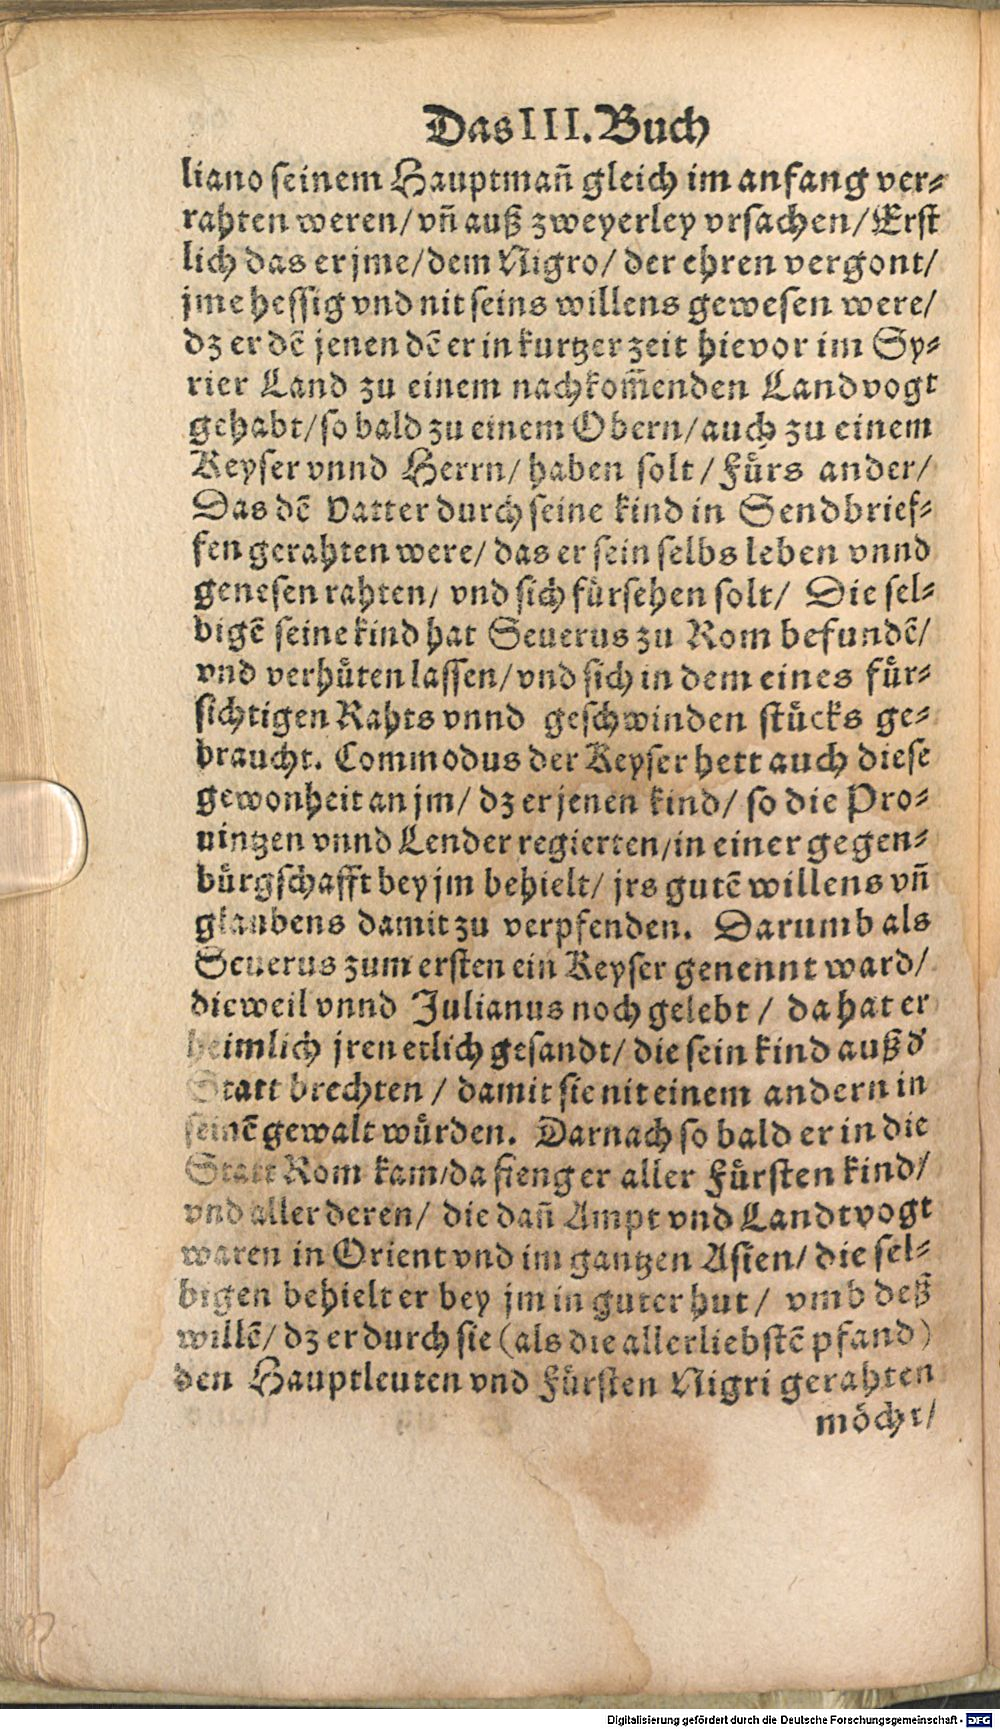 Das III. Buch
liano seinem Hauptmañ gleich im anfang ver⸗
rahten weren/ vñ auß zweyerley vrsachen/ Erst
lich das er jme/ dem Nigro/ der ehren vergont/
jme hessig vnd nit seins willens gewesen were/
dz er dē jenen dē er in kurtzer zeit hievor im Sy⸗
rier Land zu einem nachkom̃enden Landvogt
gehabt/ so bald zu einem Obern/ auch zu einem
Keyser vnnd Herrn/ haben solt/ Fuͤrs ander/
Das dē Vatter durch seine kind in Sendbrief⸗
fen gerahten were/ das er sein selbs leben vnnd
genesen rahten/ vnd sich fuͤrsehen solt/ Die sel⸗
bigē seine kind hat Seuerus zu Rom befundē/
vnd verhuͤten lassen/ vnd sich in dem eines fuͤr⸗
sichtigen Rahts vnnd geschwinden stuͤcks ge⸗
braucht. Commodus der Keyser hett auch diese
gewonheit an jm/ dz er jenen kind/ so die Pro⸗
uintzen vnnd Lender regierten/ in einer gegen⸗
buͤrgschafft bey jm behielt/ jrs gutē willens vñ
glaubens damit zu verpfenden. Darumb als
Seuerus zum ersten ein Keyser genennt ward/
dieweil vnnd Julianus noch gelebt/ da hat er
heimlich jren etlich gesandt/ die sein kind auß d'
Statt brechten/ damit sie nit einem andern in
seinē gewalt wuͤrden. Darnach so bald er in die
Statt Rom kam/ da fieng er aller Fuͤrsten kind/
vnd aller deren/ die dañ Ampt vnd Landtvogt
waren in Orient vnd im gantzen Asien/ die sel⸗
bigen behielt er bey jm in guter hut/ vmb deß
willē/ dz er durch sie (als die allerliebstē pfand)
den Hauptleuten vnd Fuͤrsten Nigri gerahten
moͤcht/
Digitalisierung gefördert durch die Deutsche Forschungsgemeinschaft - DFG